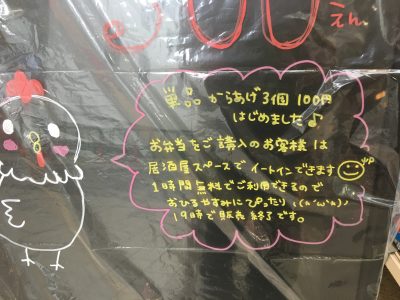 00えん
単品 からあげ3個 100円
はじめました♪
お弁当をご購入のお客様は
居酒屋スペースで イートインできます
1時間無料でご利用できるので
おひるやすみに ぴったり ₍(ᐢ'ω'ᐢ)₎
19時で販売終了です。